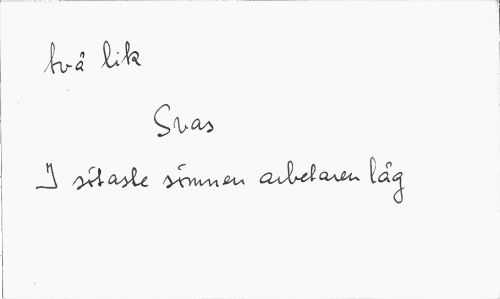 två lik
Svas
I sötaste sömnen arbetaren låg